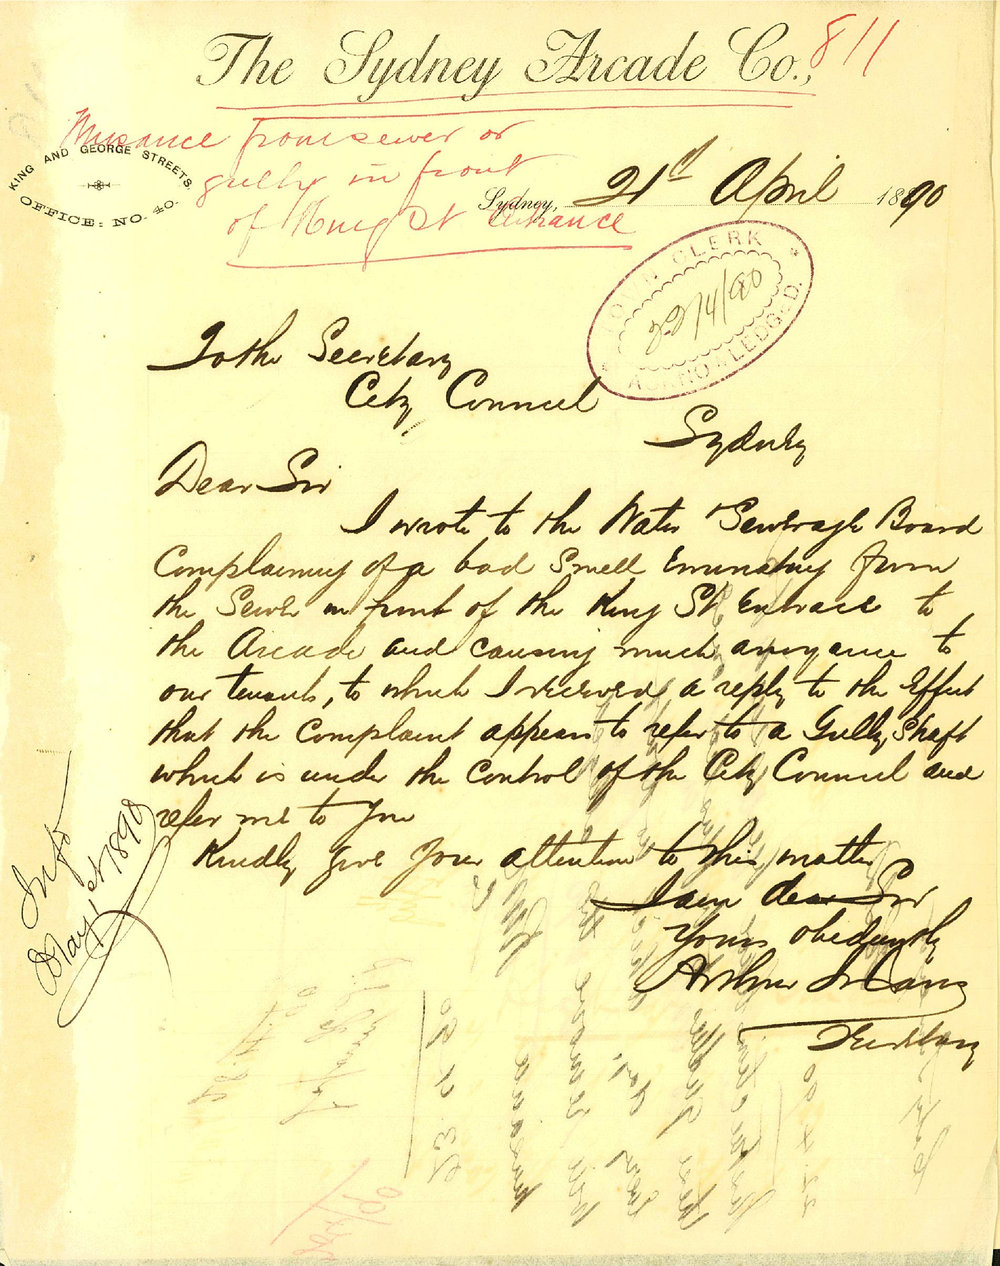 The Sydney Arcade Co.,
811
Nuisance from sewer or
gully in front
of King St Entrance
KING AND GEORGE STREETS.
OFFICE: NO. 40.
Sydney, 21st April 1890
TOWN CLERK
22/4/90
ACKNOWLEDGED.
To the Secretary
City Council
Sydney
Dear Sir
I wrote to the Water & Sewerage Board
Complaining of a bad Smell Emanating from
the Sewer in front of the King St Entrace to
the Arcade and causing much annoyance to
our tenants, to which I received a reply to the Effect
that the Complaint appears to refer to a Gully Shaft
which is under the Control of the City Council and
refer me to you
Kindly give your attention to this matter
I am dear Sir
Yours obediently
Arthur
Secretary
May 1st 1890